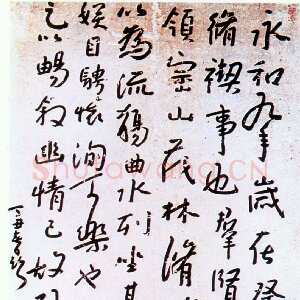 永和九年歲在癸
脩禊事也羣賢
領崇山茂林脩
以為流觴曲水列坐其
娱目騁懷洵可樂也
足以暢敘幽情已故列
丁丑